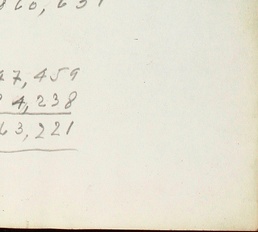 860,631
47,459
24,238
63,221